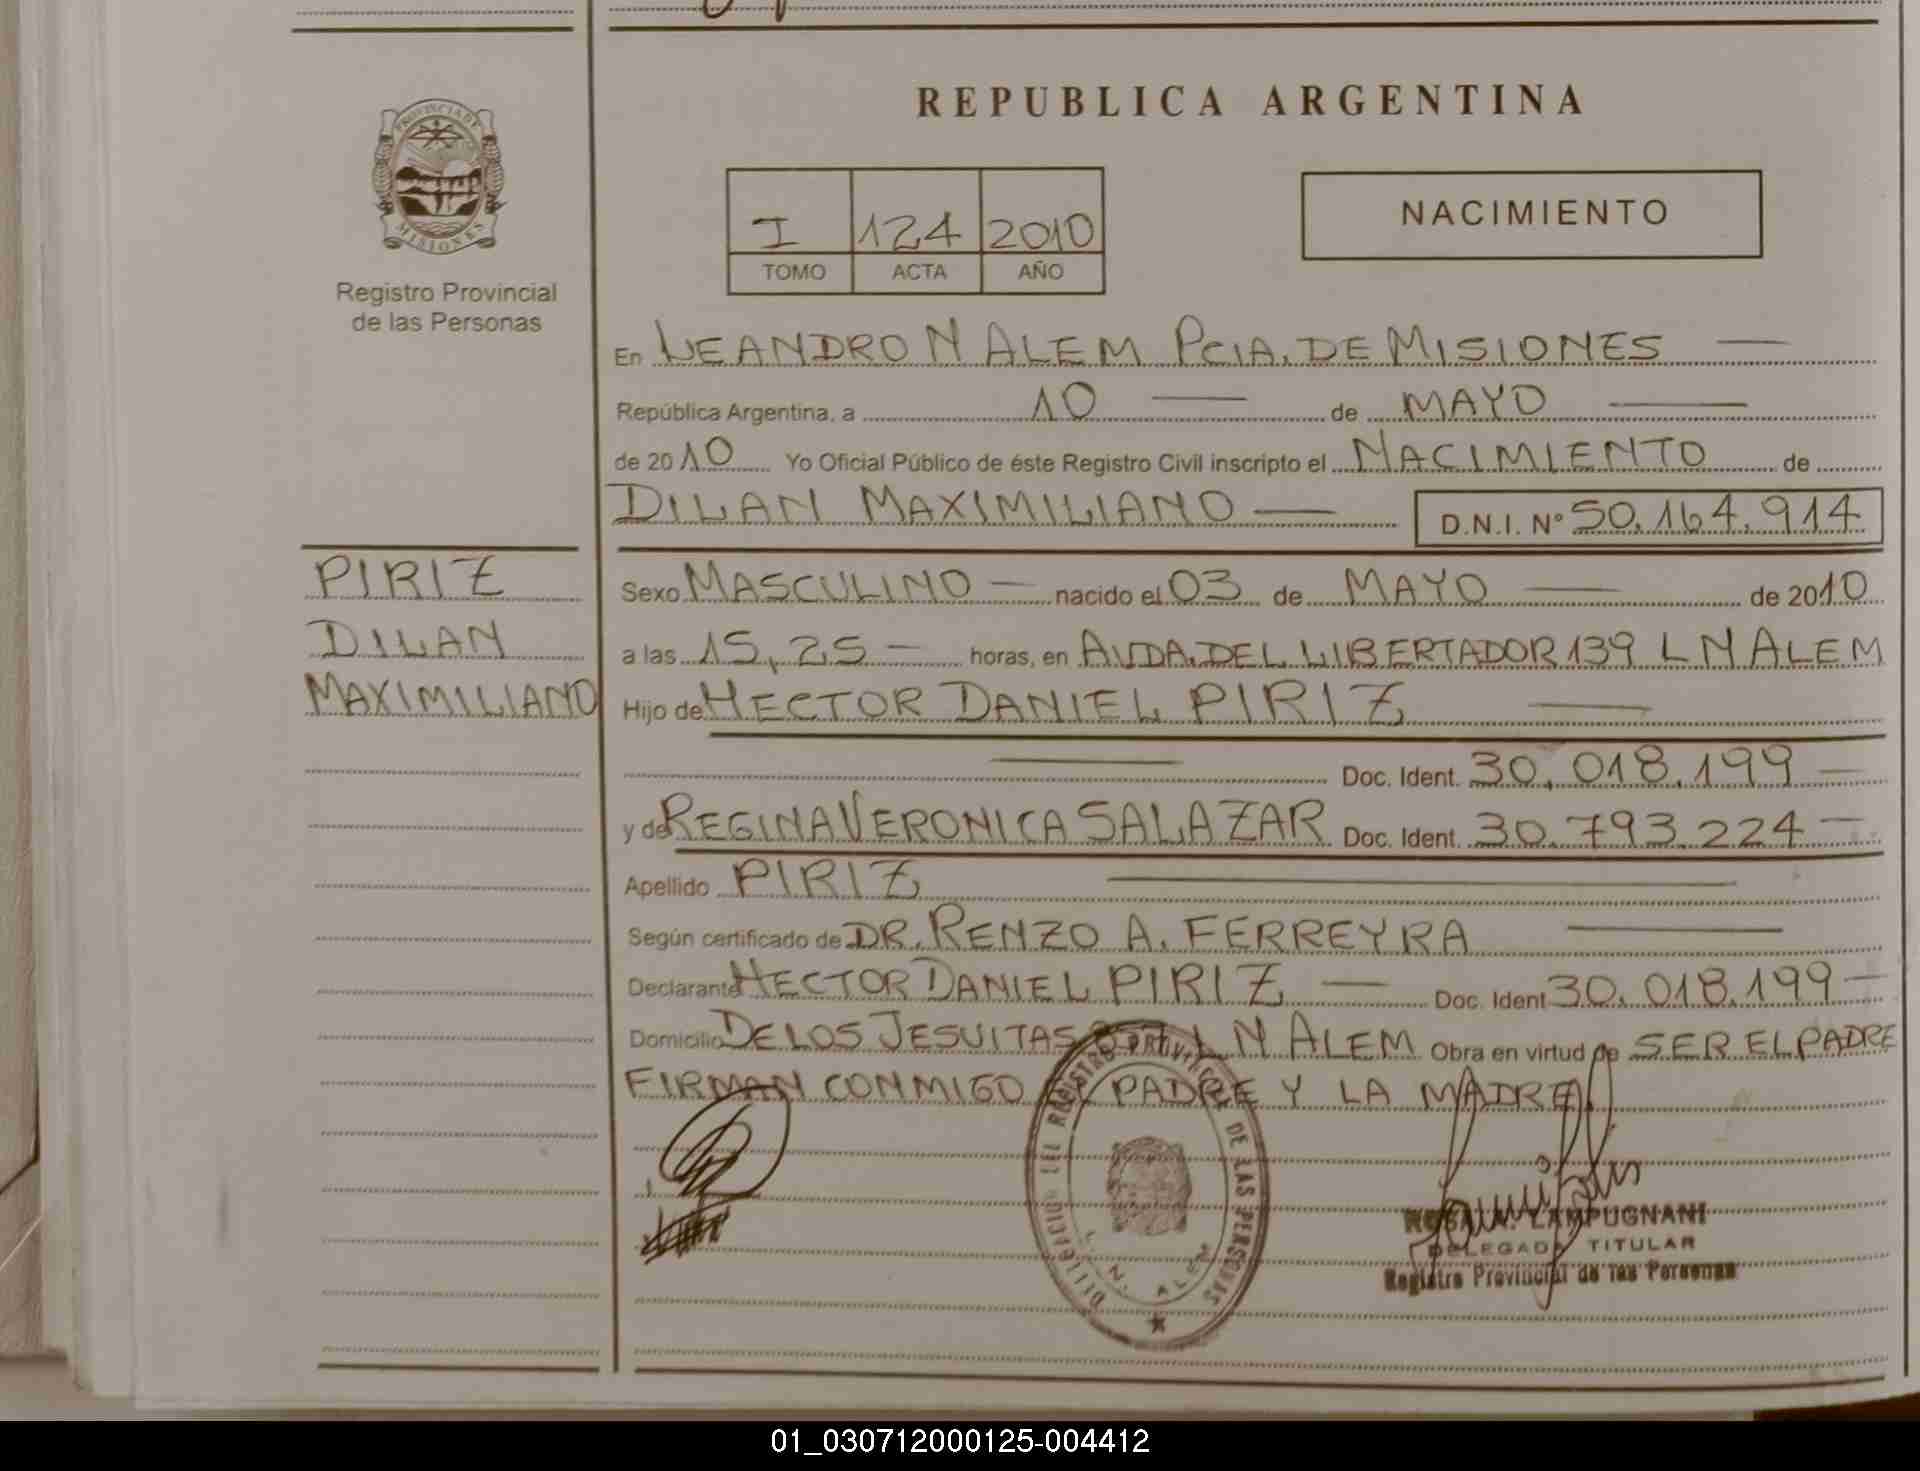 REPUBLICA ARGENTINA
PROVINCIA DE
MISIONES
Registro Provincial
de las Personas
I 124 2010
TOMO ACTA AÑO
NACIMIENTO
En LEANDRO N ALEM PCIA. DE MISIONES
República Argentina, a 10 de MAYO
de 2010 Yo Oficial Público de éste Registro Civil inscripto el NACIMIENTO de
DILAN MAXIMILIANO D.N.I. Nº 50.164.914
PIRIZ
DILAN
MAXIMILIANO
Sexo MASCULINO nacido el 03 de MAYO de 2010
a las 15,25 horas, en AVDA. DEL LIBERTADOR 139 L N ALEM
Hijo de HECTOR DANIEL PIRIZ
Doc. Ident. 30.018.199
y de REGINA VERONICA SALAZAR Doc. Ident. 30.793.224
Apellido PIRIZ
Según certificado de DR. RENZO A. FERREYRA
Declarante HECTOR DANIEL PIRIZ Doc. Ident 30.018.199
Domicilio DE LOS JESUITAS L N ALEM Obra en virtud de SER EL PADRE
FIRMAN CONMIGO PADRE Y LA MADRE
REGISTRO PROVINCIAL DE LAS PERSONAS
L. N. ALEM
LAMPUGNANI
DELEGADA TITULAR
Registro Provincial de las Personas
01_030712000125-004412